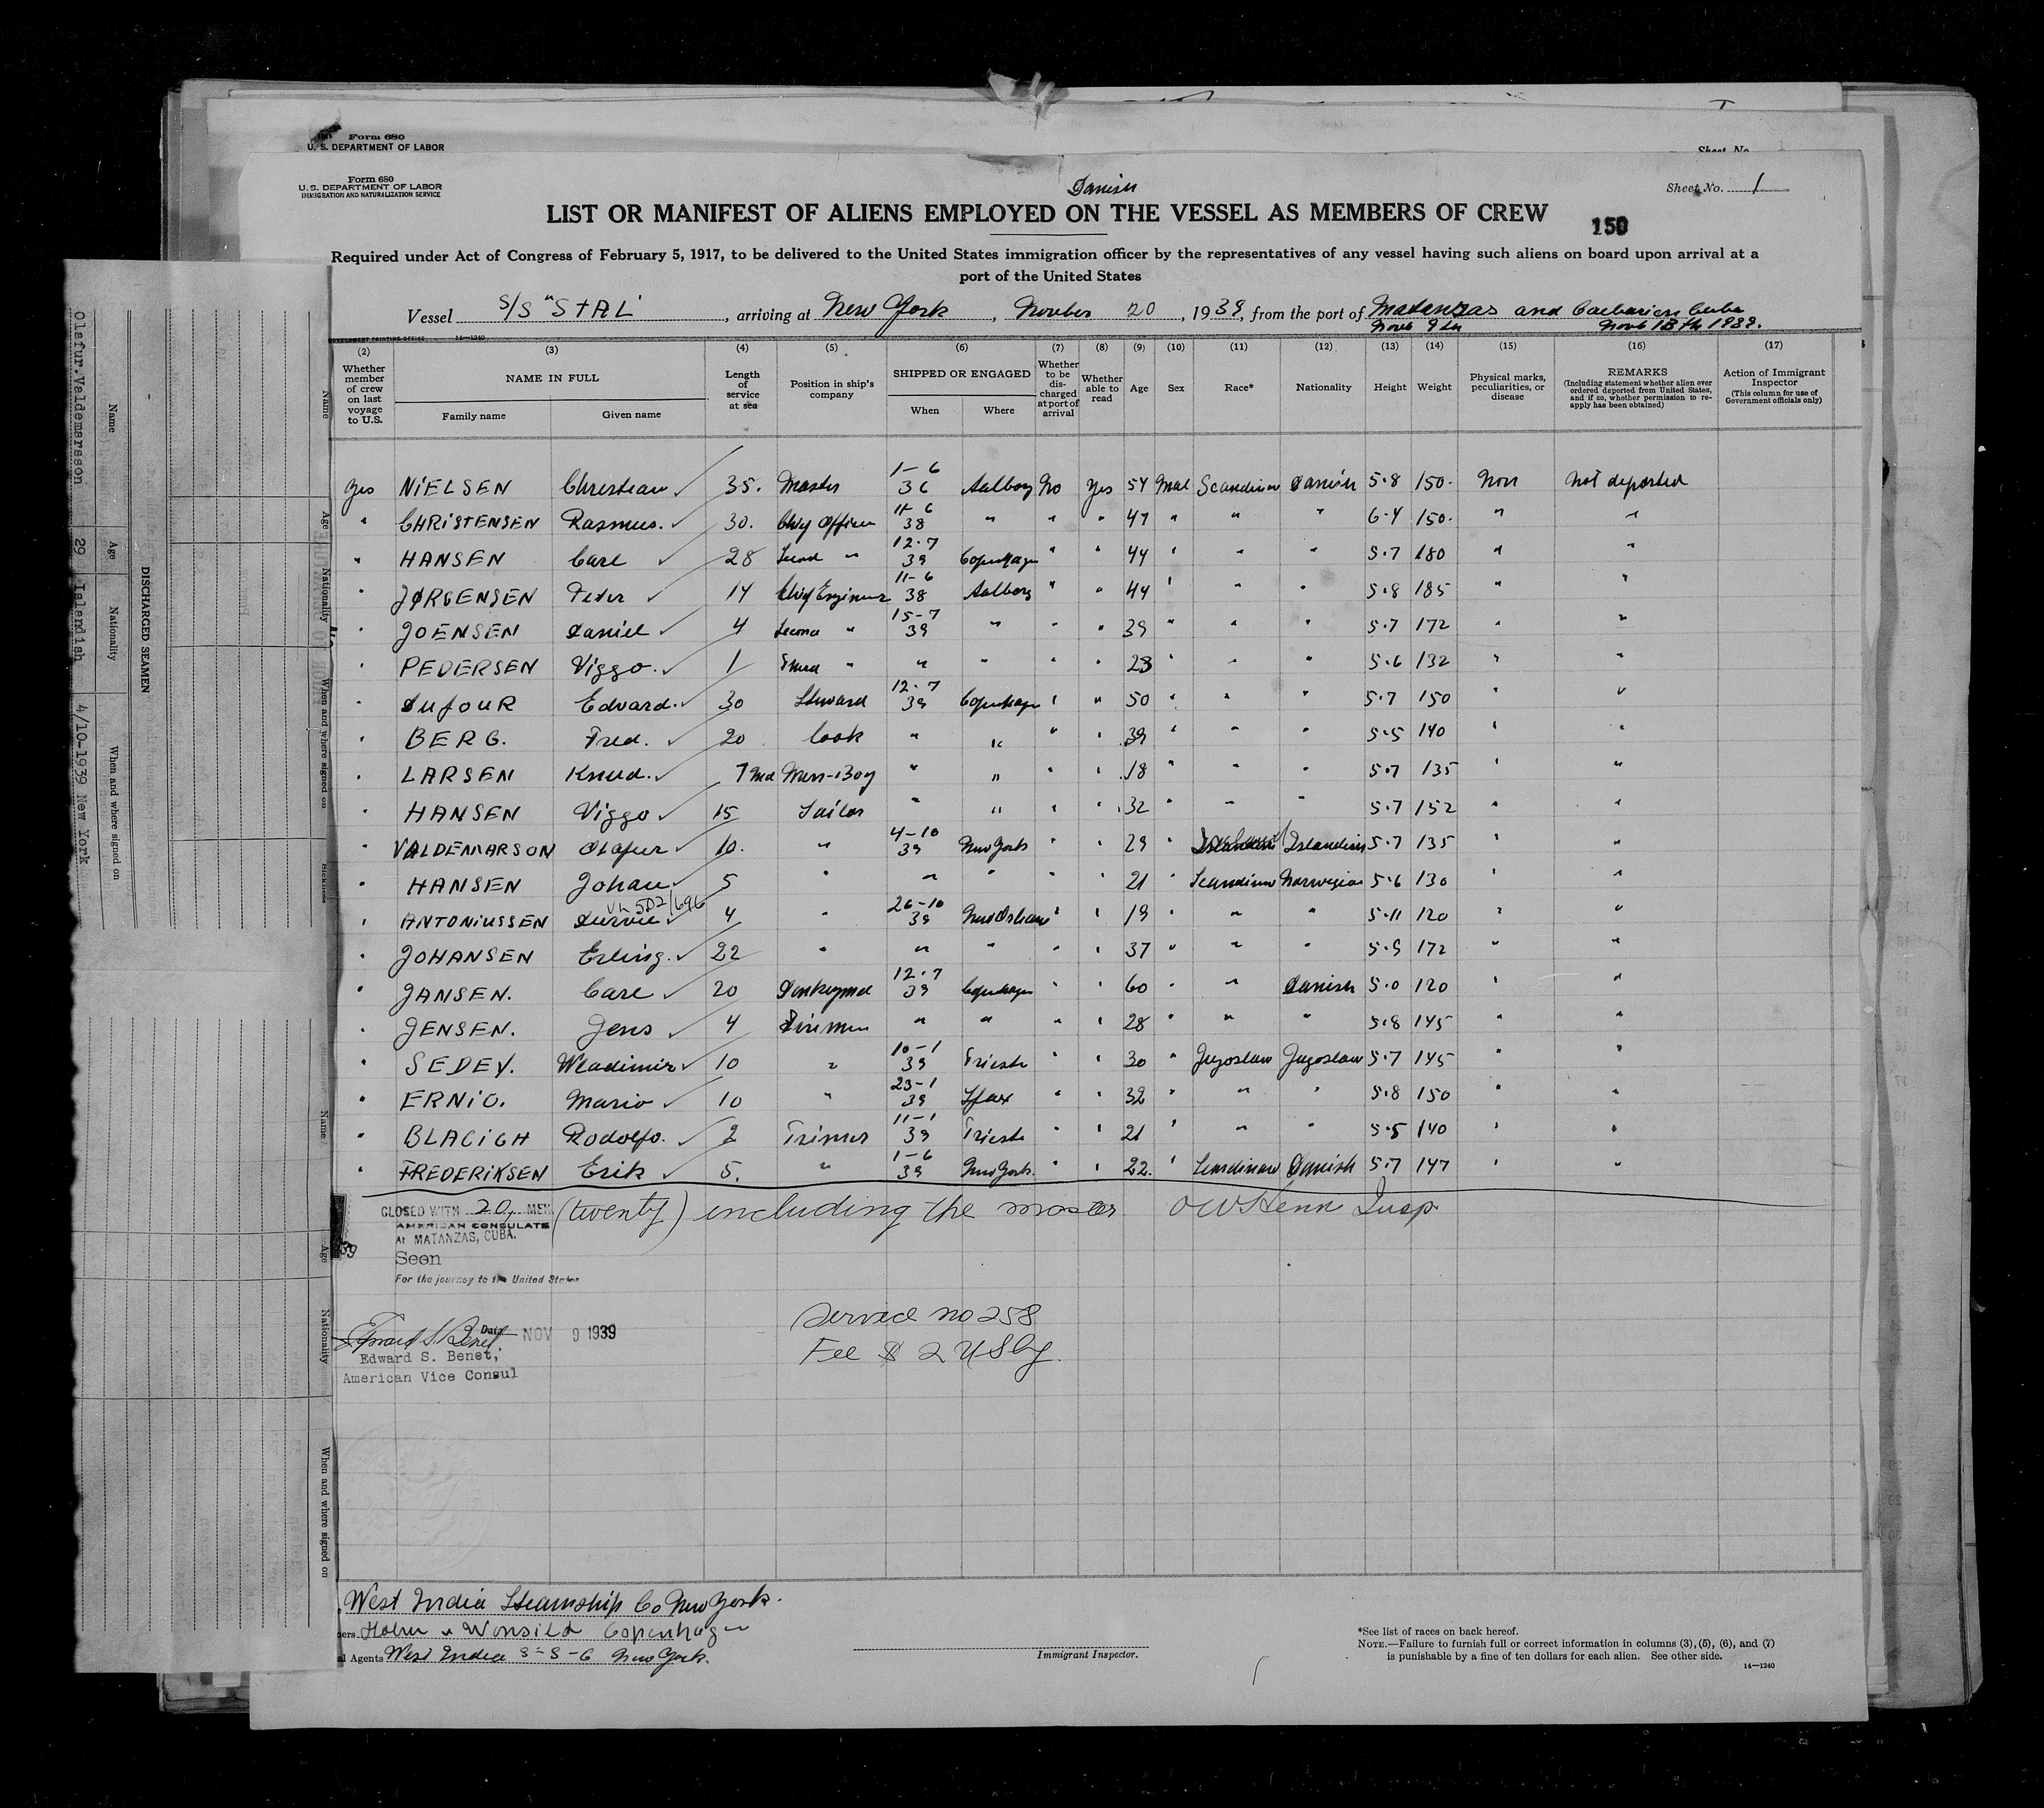 Form 680
U. S. DEPARTMENT OF LABOR
Sheet No.
Form 680
U.S. DEPARTMENT OF LABOR
IMMIGRATION AND NATURALIZATION SERVICE
Danish
Sheet No. 1
LIST OR MANIFEST OF ALIENS EMPLOYED ON THE VESSEL AS MEMBERS OF CREW
150
Required under Act of Congress of February 5, 1917, to be delivered to the United States immigration officer by the representatives of any vessel having such aliens on board upon arrival at a
port of the United States
Vessel S/S "STAL", arriving at New York, 20, 1939, from the port of Matanzas and Caibarien Cuba
14—1240
(2) (3) (4) (5) (6) (7) (8) (9) (10) (11) (12) (13) (14) (15) (16) (17)
Whether member of crew on last voyage to U.S.
NAME IN FULL
Family name Given name
Length of service at sea
Position in ship's company
SHIPPED OR ENGAGED
When Where
Whether to be discharged at port of arrival
Whether able to read
Age Sex Race* Nationality Height Weight
Physical marks, peculiarities, or disease
REMARKS
(Including statement whether alien ever ordered deported from United States, and if so, whether permission to reapply has been obtained)
Action of Immigrant Inspector
(This column for use of Government officials only)
Yes NIELSEN Christian 35. Master 1-6 36 Aalborg No Yes 54 Mal Scandinav Danish 5·8 150 Non Not deported
" CHRISTENSEN Rasmus. 30. Chief Officer 11-6 38 " " " 47 " " " 6·4 150 " "
" HANSEN Carl 28 Second " 12·7 39 Copenhagen " " 44 " " " 5·7 180 " "
" JØRGENSEN Peter 14 Chief Engineer 11-6 38 Aalborg " " 44 " " " 5·8 185 " "
" JOENSEN Daniel 4 Second " 15-7 39 " " " 39 " " " 5·7 172 " "
" PEDERSEN Viggo. 1 " " " " " 23 " " " 5·6 132 " "
" DUFOUR Edvard. 30 Steward 12·7 39 Copenhagen " " 50 " " " 5·7 150 " "
" BERG. Fred. 20 Cook " " " " 39 " " " 5·5 140 " "
" LARSEN Knud. 7 Mess-Boy " " " " 18 " " " 5·7 135 " "
" HANSEN Viggo 15 Sailor " " " " 32 " " " 5·7 152 " "
" VALDEMARSON Olafur 10. " 4-10 39 New York " " 29 " Islandish 5·7 135 " "
" HANSEN Johan 5 " " " " " 21 " Scandinav Norwegian 5·6 130 " "
" ANTONIUSSEN 4 " 26-10 39 New Orleans " " 19 " " " 5·11 120 " "
" JOHANSEN Erling. 22 " " " " " 37 " " " 172 " "
" JANSEN. Carl 20 Donkeyman 12·7 39 Copenhagen " " 60 " " Danish 5·0 120 " "
" JENSEN. Jens 4 Firemen " " " " 28 " " " 5·8 145 " "
" SEDEY. Wladimir 10 " 10-1 39 Trieste " " 30 " Jugoslaw Jugoslaw 5·7 145 " "
" ERNIO. Mario 10 " 23-1 39 Sfax " " 32 " " " 5·8 150 " "
" BLACIGH Rodolfo. 2 Trimer 11-1 39 Trieste " " 21 " " " 5·5 140 " "
" FREDERIKSEN Erik 5. " 1-6 39 New York. " " 22. " Scandinav Danish 5·7 147 " "
CLOSED WITH 20 MEN (twenty) including the master
AMERICAN CONSULATE
At MATANZAS, CUBA.
Seen
For the journey to the United States
Date NOV 9 1939
Edward S. Benet,
American Vice Consul
Service no 258
Fee $ 2
West India Steamship Co New York.
Holm & Wonsild Copenhagen
al Agents West India S-S-C New York.
Immigrant Inspector.
*See list of races on back hereof.
NOTE.—Failure to furnish full or correct information in columns (3), (5), (6), and (7)
is punishable by a fine of ten dollars for each alien. See other side.
14—1240
DISCHARGED SEAMEN
Name Age Nationality When and where signed on
Olafur.Valdemarsson 29 Islandish 4/10-1939 New York
Name Age Nationality When and where signed on
Name Age Nationality When and where signed on